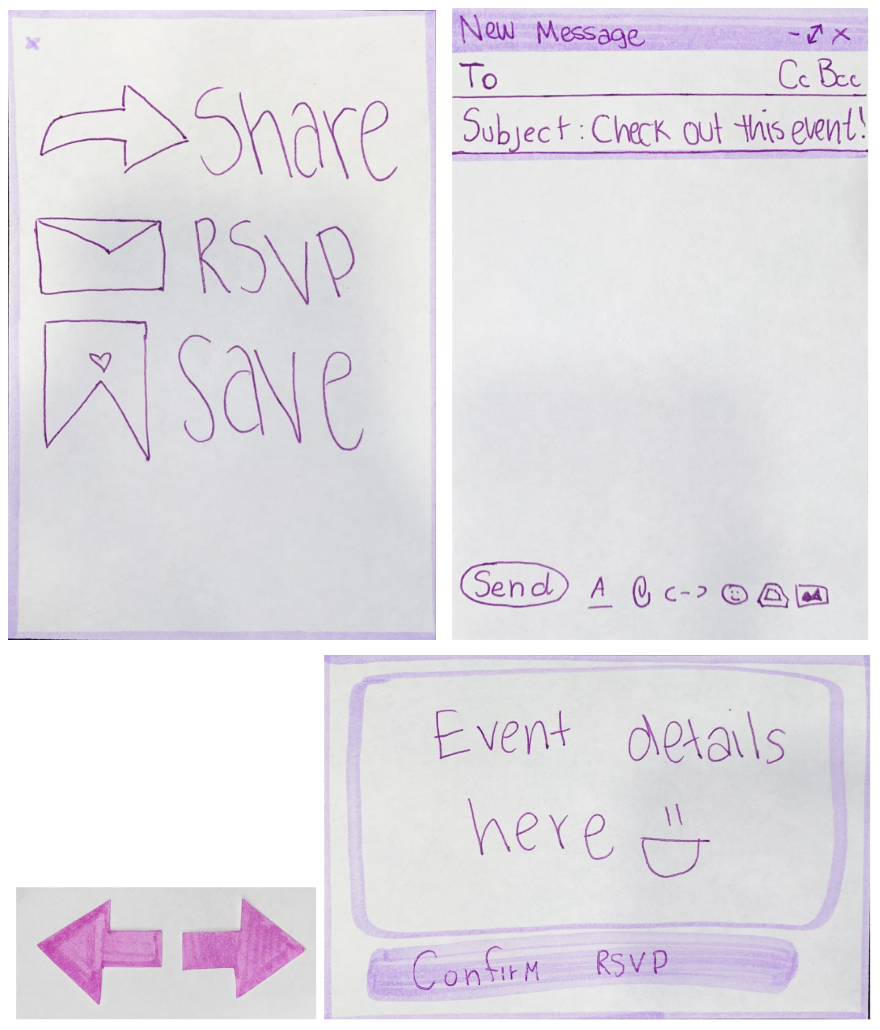 x
Share
RSVP
Save
New Message
To Cc Bcc
Subject: Check out this event!
Send A
Event details
here
Confirm RSVP